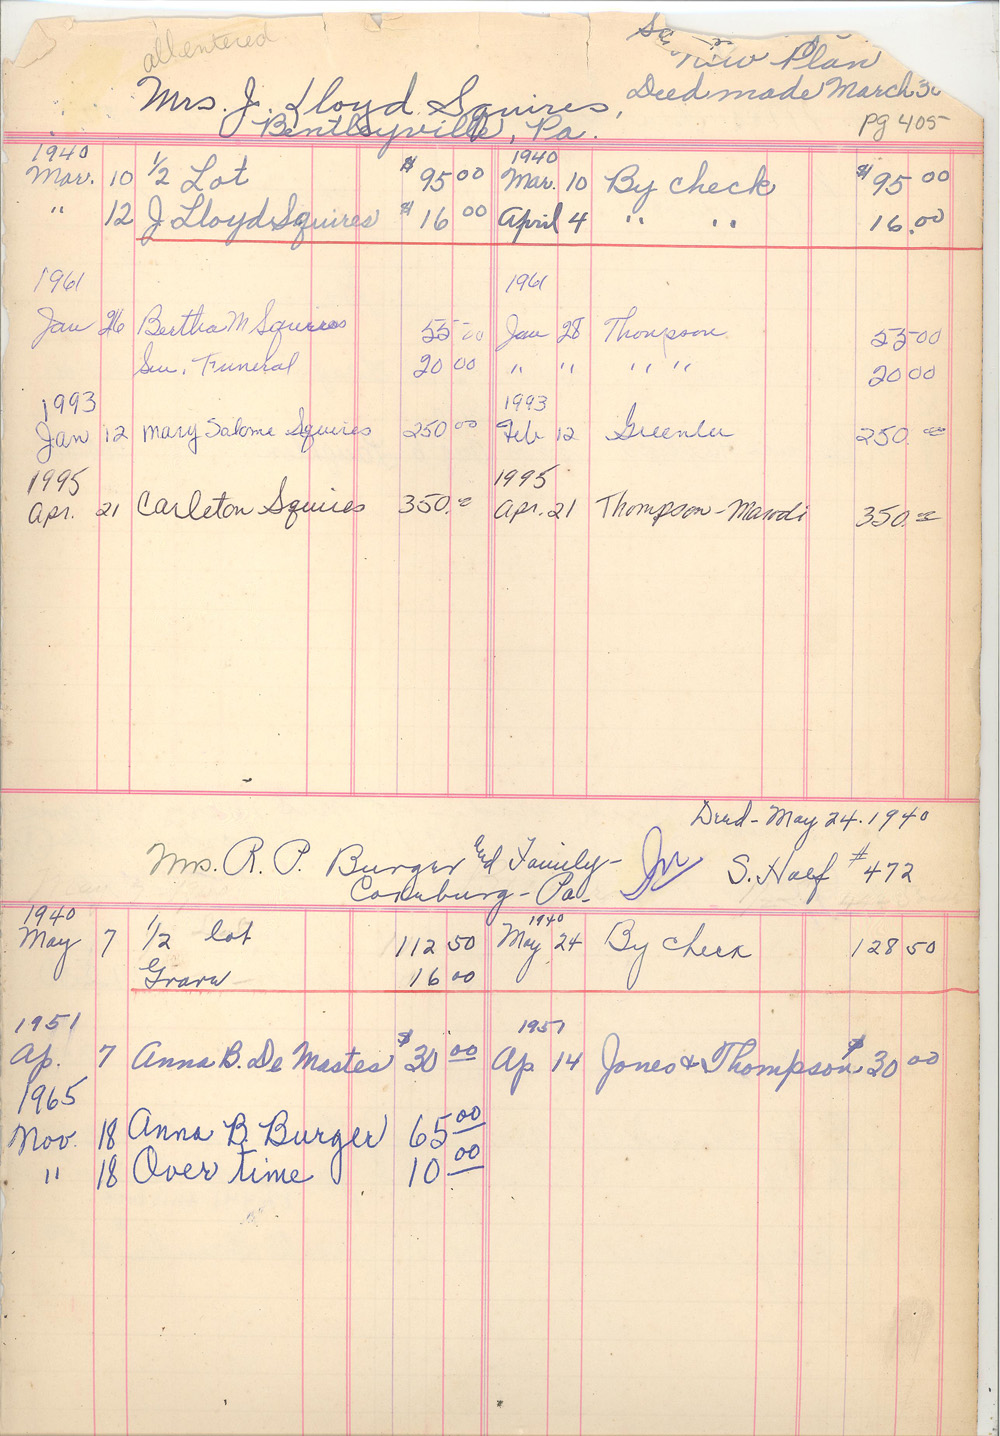 all entered
New Plan
Deed made March 30
pg 405
Mrs. J. Lloyd Squires,
Bentleyville, Pa.
1940 1940
Mar. 10 1/2 Lot $95 00 Mar. 10 By check $95 00
" 12 J Lloyd Squires $16 00 April 4 " " 16.00
1961 1961
Jan 26 Bertha M Squires 55 00 Jan 28 Thompson 55 00
Sun. Funeral 20 00 " " " " 20 00
1993 1993
Jan 12 Mary Salome Squires 250 00 Feb 12 Greenlee 250.00
1995 1995
Apr. 21 Carleton Squires 350.00 Apr. 21 Thompson-Marodi 350.00
Deed - May 24. 1940
Mrs. R. P. Burger and Family - S. Half #472
Cokeburg - Pa.
1940 1940
May 7 1/2 lot 112 50 May 24 By check 128 50
Grave 16 00
1951 1951
Ap. 7 Anna B. De Mastes $30 00 Ap 14 Jones & Thompson $30 00
1965
Nov. 18 Anna B. Burger 65 00
" 18 Over time 10 00